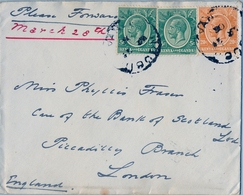 Please Forward
March 28th
Miss Phyllis Fraser
Care of the Bank of Scotland
Ltd
Piccadilly Branch
London
England.